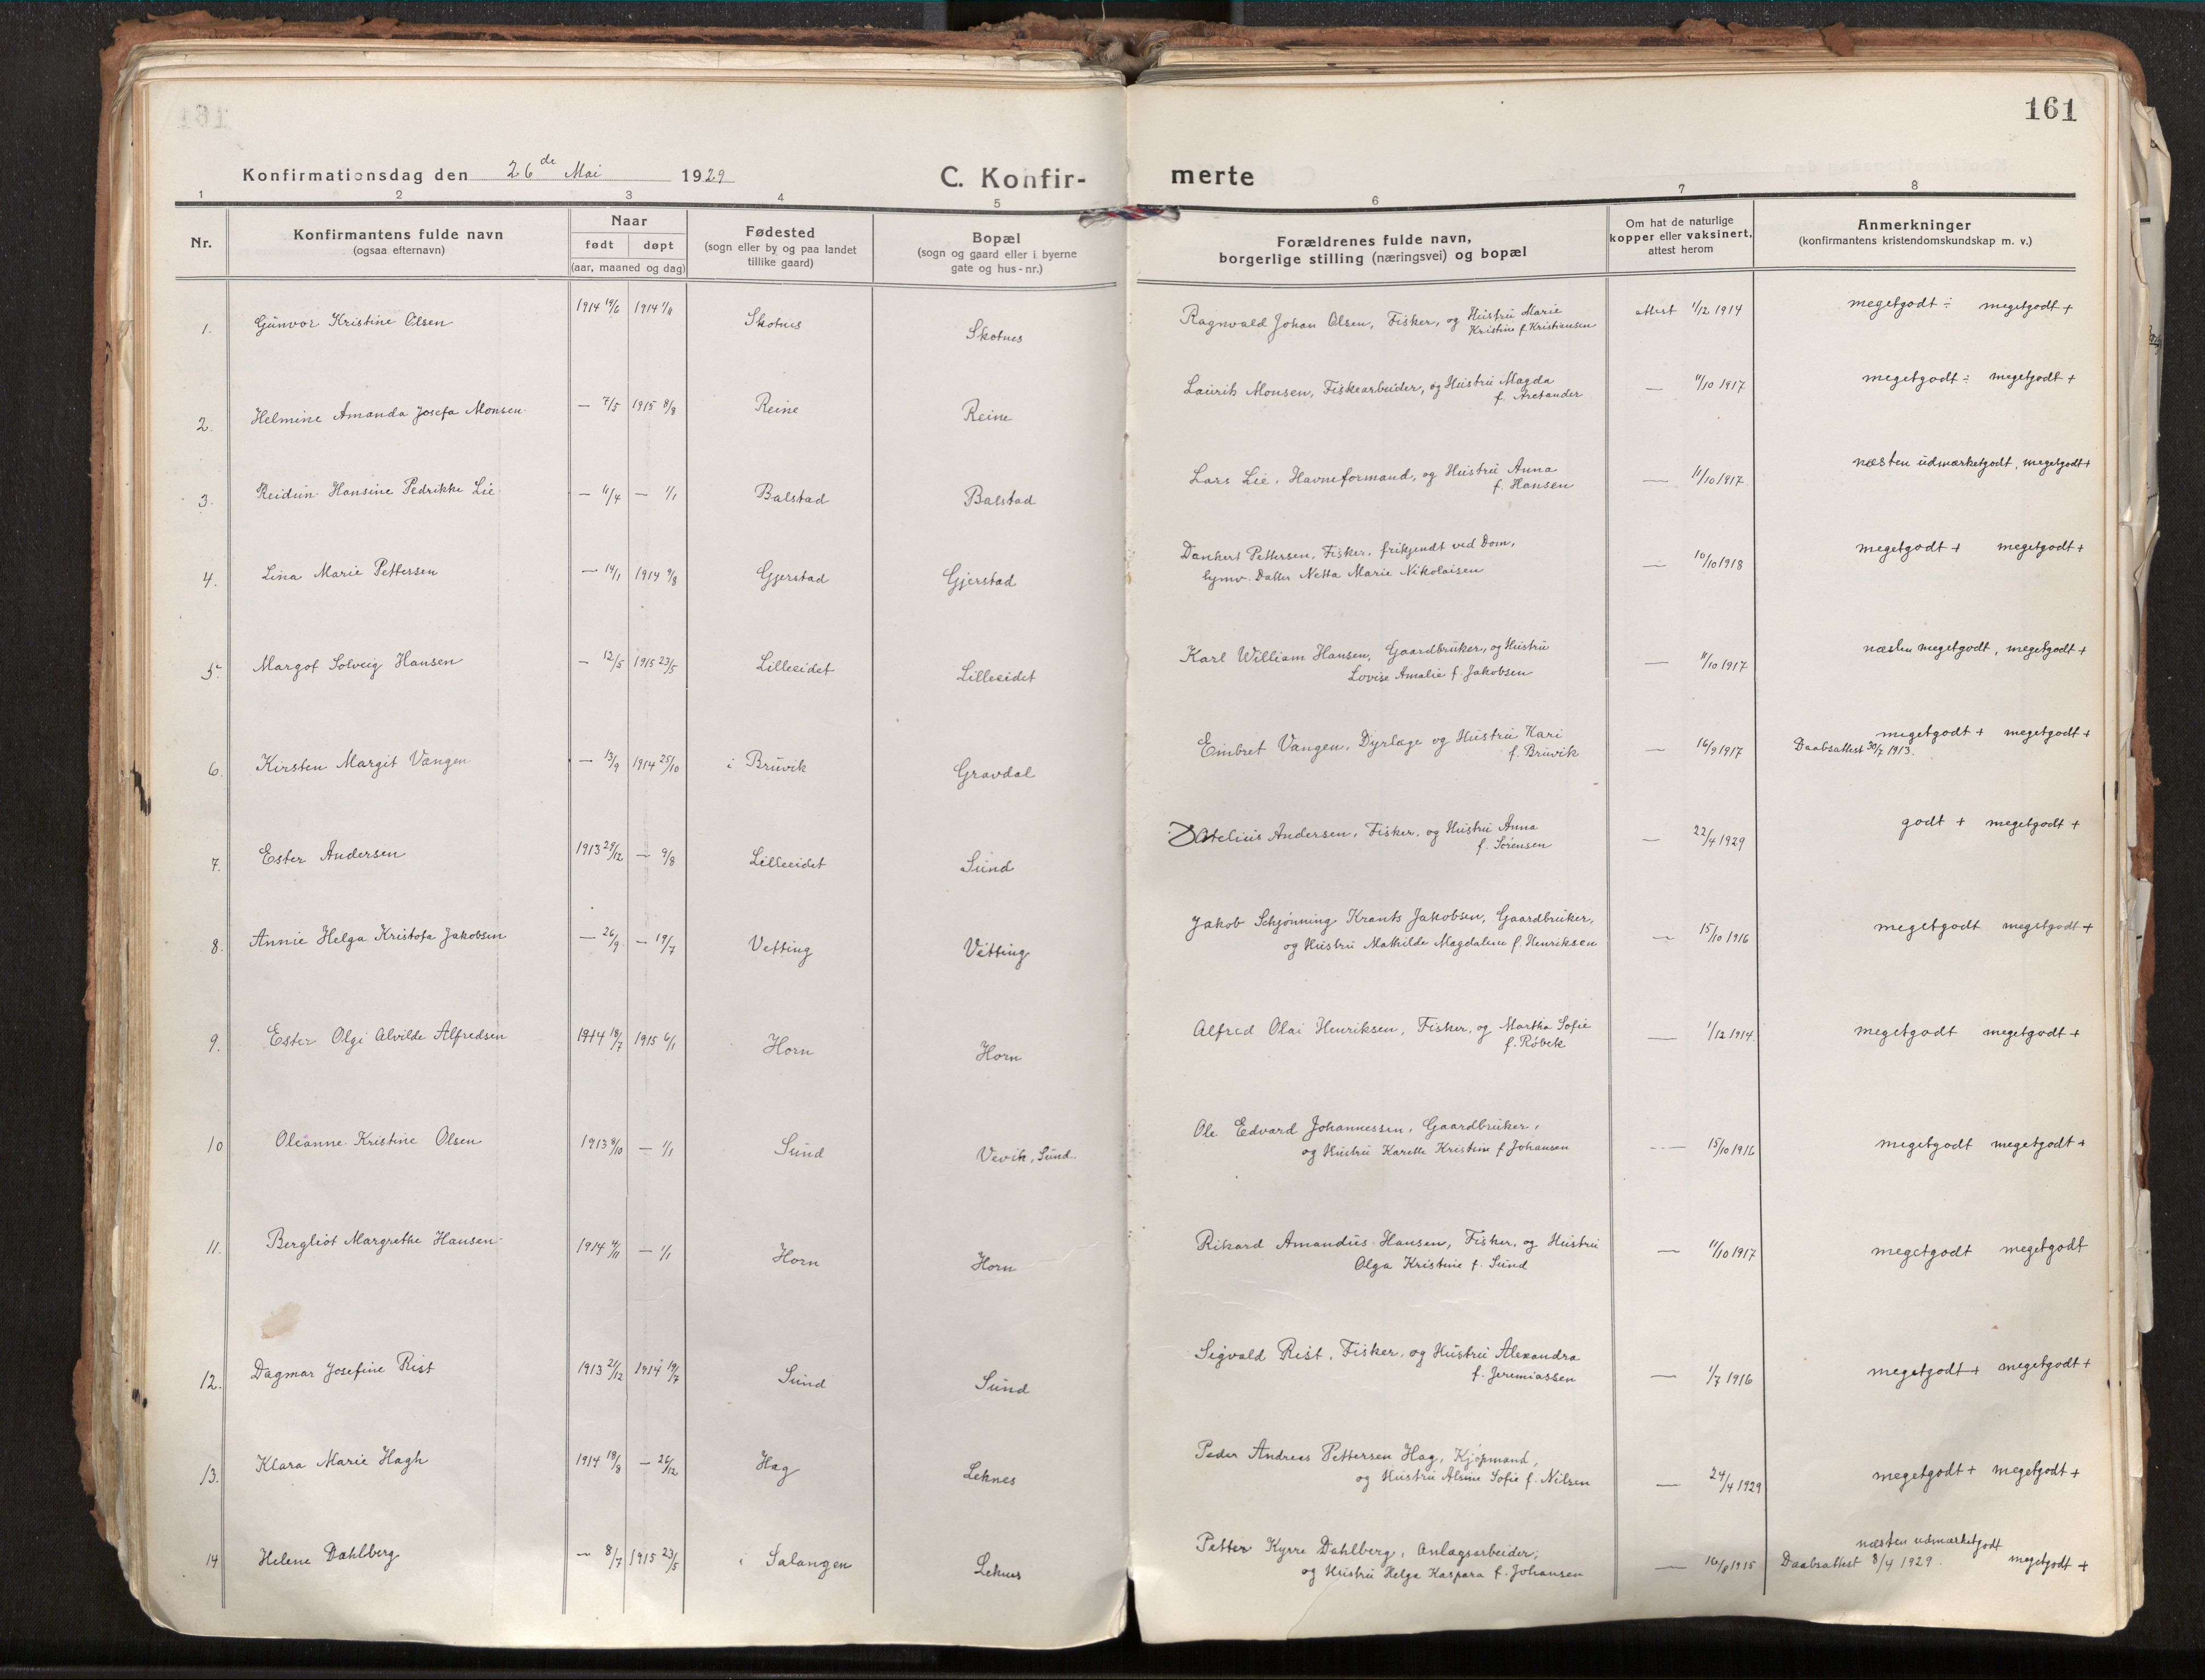 161
Konfirmationsdag den 26de Mai 1929 C. Konfir- merte
1 2 3 4 5 6 7 8
Nr.
Konfirmantens fulde navn
(ogsaa efternavn)
Naar
født døpt
(aar, maaned og dag)
Fødested
(sogn eller by og paa landet
tillike gaard)
Bopæl
(sogn og gaard eller i byerne
gate og hus-nr.)
Forældrenes fulde navn,
borgerlige stilling (næringsvei) og bopæl
Om hat de naturlige
kopper eller vaksinert,
attest herom
Anmerkninger
(konfirmantens kristendomskundskap m. v.)
1. Gunvor Kristine Olsen 1914 19/6 1914 1/11 Skotnes Skotnes Ragnvald Johan Olsen, Fisker, og Hustru Marie attest 1/12 1914 megetgodt ÷ megetgodt +
Kristine f. Kristiansen
2. Helmine Amanda Josefa Monsen — 7/5 1915 8/8 Reine Reine Laurits Monsen, Fiskearbeider, og Hustru Magda — 11/10 1917 megetgodt ÷ megetgodt +
f. Aretander
3. Reidun Hansine Pedrikke Lie — 11/4 — 1/1 Balstad Balstad Lars Lie, Havneformand, og Hustru Anna — 11/10 1917 næsten udmærketgodt, megetgodt +
f. Hansen
4. Lina Marie Pettersen — 14/1 1914 9/8 Gjerstad Gjerstad Dankert Pettersen, Fisker, frikjendt ved Dom, — 10/10 1918 megetgodt + megetgodt +
Datter Netta Marie Nikolaisen
5. Margot Solveig Hansen — 12/5 1915 23/5 Lilleeidet Lilleeidet Karl William Hansen, Gaardbruker, og Hustru — 11/10 1917 næsten megetgodt, megetgodt +
Lovise Amalie f. Jakobsen
6. Kirsten Margit Vangen — 13/9 1914 25/10 i Bruvik Gravdal Embret Vangen, Dyrlæge og Hustru Kari — 16/9 1917 megetgodt + megetgodt +
f. Bruvik Daabsattest 30/7 1913.
7. Ester Andersen 1913 29/12 — 9/8 Lilleeidet Sund Andersen, Fisker, og Hustru Anna — 22/4 1929 godt + megetgodt +
f. Sørensen
8. Annie Helga Kristofa Jakobsen — 26/9 — 19/7 Vetting Vetting Jakob Schjønning Krants Jakobsen, Gaardbruker, — 15/10 1916 megetgodt megetgodt +
og Hustru Mathilde Magdalene f. Henriksen
9. Ester Olgi Alvilde Alfredsen 1914 18/7 1915 6/1 Horn Horn Alfred Olai Henriksen, Fisker, og Martha Sofie — 1/12 1914. megetgodt megetgodt +
f. Røbek
10 Oleanne Kristine Olsen 1913 8/10 — 1/1 Sund Vevik, Sund. Ole Edvard Johannessen, Gaardbruker, — 15/10 1916 megetgodt megetgodt +
og Hustru Karette Kristine f. Johansen
11. Bergliot Margrethe Hansen 1914 4/11 — 1/1 Horn Horn Rikard Amandus Hansen, Fisker, og Hustru — 11/10 1917 megetgodt megetgodt
Olga Kristine f. Sund
12. Dagmar Josefine Rist 1913 21/12 1914 19/7 Sund Sund Sigvald Rist, Fisker, og Hustru Alexandra — 1/7 1916 megetgodt + megetgodt +
f. Jeremiassen
13. Klara Marie Hagh 1914 18/8 — 26/12 Hag Leknes Peder Andreas Pettersen Hag, Kjøpmand, — 24/4 1929 megetgodt + megetgodt +
og Hustru Alsine Sofie f. Nilsen
14 Helene Dahlberg — 8/7 1915 23/5 i Salangen Leknes Petter Kyrre Dahlberg, Anlægsarbeider, — 16/8 1915 næsten udmærketgodt
og Hustru Helga Kaspara f. Johansen Daabsattest 8/4 1929. megetgodt +